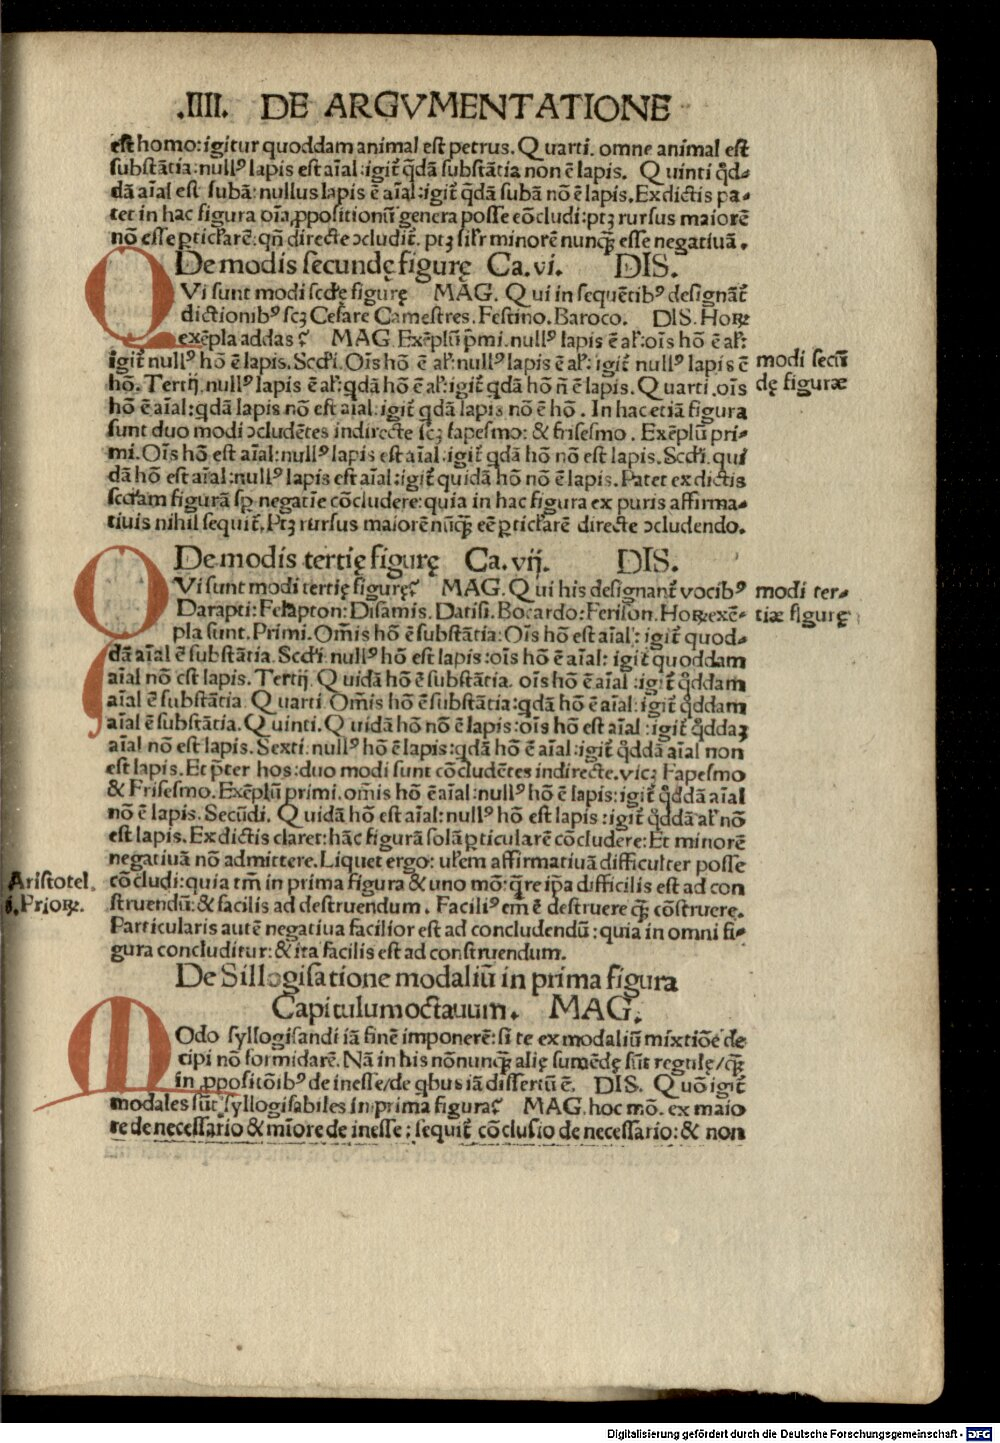 .IIII. DE ARGVMENTATIONE
est homo: igitur quoddam animal est petrus. Quarti. omne animal est
substãtia: null⁹ lapis est aĩal: igit̃ q̃dã substãtia non ẽ lapis. Quinti q̃d-
dã aĩal est subã: nullus lapis ẽ aĩal: igit̃ q̃dã subã nõ ẽ lapis. Ex dictis pa-
tet in hac figura oĩa ꝓpositionũ genera posse cõcludi: ptꝫ rursus maiorẽ
nõ esse ꝑticl'arẽ. qñ directe ↄcludit̃. ptꝫ sil'r minorẽ nunꝗ̃ esse negatiuã.
De modis secundę figurę Ca. vi. DIS.
QVi sunt modi scd'ę figurę MAG. Qui in sequẽtib⁹ designãt̃
dictionib⁹ scꝫ Cesare Camestres. Festino. Baroco. DIS. Hoꝝ
exẽpla addas? MAG. Exẽplũ p̃mi. null⁹ lapis ẽ al': oĩs hõ ẽ al':
igit̃ null⁹ hõ ẽ lapis. Scd'i. Oĩs hõ ẽ al': null⁹ lapis ẽ al': igit̃ null⁹ lapis ẽ
modi secũ
hõ. Tertij. null⁹ lapis ẽ al': qdã hõ ẽ al': igit̃ qdã hõ ñ ẽ lapis. Quarti. oĩs
dę figuræ
hõ ẽ aĩal: qdã lapis nõ est aĩal: igit̃ qdã lapis nõ ẽ hõ. In hac etiã figura
sunt duo modi ↄcludẽtes indirecte scꝫ fapesmo: & frisesmo. Exẽplũ pri-
mi. Oĩs hõ est aĩal: null⁹ lapis est aĩal: igit̃ qdã hõ nõ est lapis. Scd'i. qui
dã hõ est aĩal: null⁹ lapis est aĩal: igit̃ quidã hõ nõ ẽ lapis. Patet ex dictis
scd'am figurã sp̱ negatĩe cõcludere: quia in hac figura ex puris affirma-
tiuis nihil sequit̃. Ptꝫ rursus maiorẽ nũꝗ̃ eẽ ꝑticl'arẽ directe ↄcludendo.
De modis tertię figurę Ca. vij. DIS.
QVi sunt modi tertię figurę? MAG. Qui his designant̃ vocib⁹
modi ter-
Darapti: Felapton: Disamis. Datisi. Bocardo: Ferison. Hoꝝ exẽ-
tiæ figurę
pla sunt. Primi. Om̃is hõ ẽ substãtia: Oĩs hõ est aĩal: igit̃ quod-
dã aĩal ẽ substãtia. Scd'i. null⁹ hõ est lapis: oĩs hõ ẽ aĩal: igit̃ quoddam
aĩal nõ est lapis. Tertij. Quidã hõ ẽ substãtia. oĩs hõ ẽ aĩal: igit̃ q̃ddam
aĩal ẽ substãtia Quarti. Om̃is hõ ẽ substãtia: qdã hõ ẽ aĩal: igit̃ q̃ddam
aĩal ẽ substãtia. Quinti. Quidã hõ nõ ẽ lapis: oĩs hõ est aĩal: igit̃ q̃ddaꝫ
aĩal nõ est lapis. Sexti: null⁹ hõ ẽ lapis: qdã hõ ẽ aĩal: igit̃ q̃ddã aĩal non
est lapis. Et p̃ter hos: duo modi sunt cõcludẽtes indirecte. vicꝫ Fapesmo
& Frisesmo. Exẽplũ primi. om̃is hõ ẽ aĩal: null⁹ hõ ẽ lapis: igit̃ q̃ddã aĩal
nõ ẽ lapis. Secũdi. Quidã hõ est aĩal: null⁹ hõ est lapis: igit̃ q̃ddã al' nõ
est lapis. Ex dictis claret: hãc figurã solã ꝑticularẽ cõcludere: Et minorẽ
negatiuã nõ admittere. Liquet ergo: vl'em affirmatiuã difficulter posse
Aristotel.
cõcludi: quia tm̃ in prima figura & uno mõ: q̃re ip̃a difficilis est ad con
i. Prioꝝ.
struendũ: & facilis ad destruendum. Facili⁹ em̃ ẽ destruere ꝗ̃ cõstruere.
Particularis autẽ negatiua facilior est ad concludendũ: quia in omni fi-
gura concluditur: & ita facilis est ad construendum.
De Sillogisatione modaliũ in prima figura
Capitulum octauum. MAG.
MOdo syllogisandi iã finẽ imponerẽ: si te ex modaliũ mixtiõe de
cipi nõ formidarẽ. Nã in his nõnunꝗ̃ alię sumẽdę sũt regulę/ꝗ̃
in ꝓpositõib⁹ de inesse/de qbus iã dissertũ ẽ. DIS. Quõ igit̃
modales sũt syllogisabiles in prima figura? MAG. hoc mõ. ex maio
re de necessario & mĩore de inesse; sequit̃ cõclusio de necessario: & non
Digitalisierung gefördert durch die Deutsche Forschungsgemeinschaft - DFG